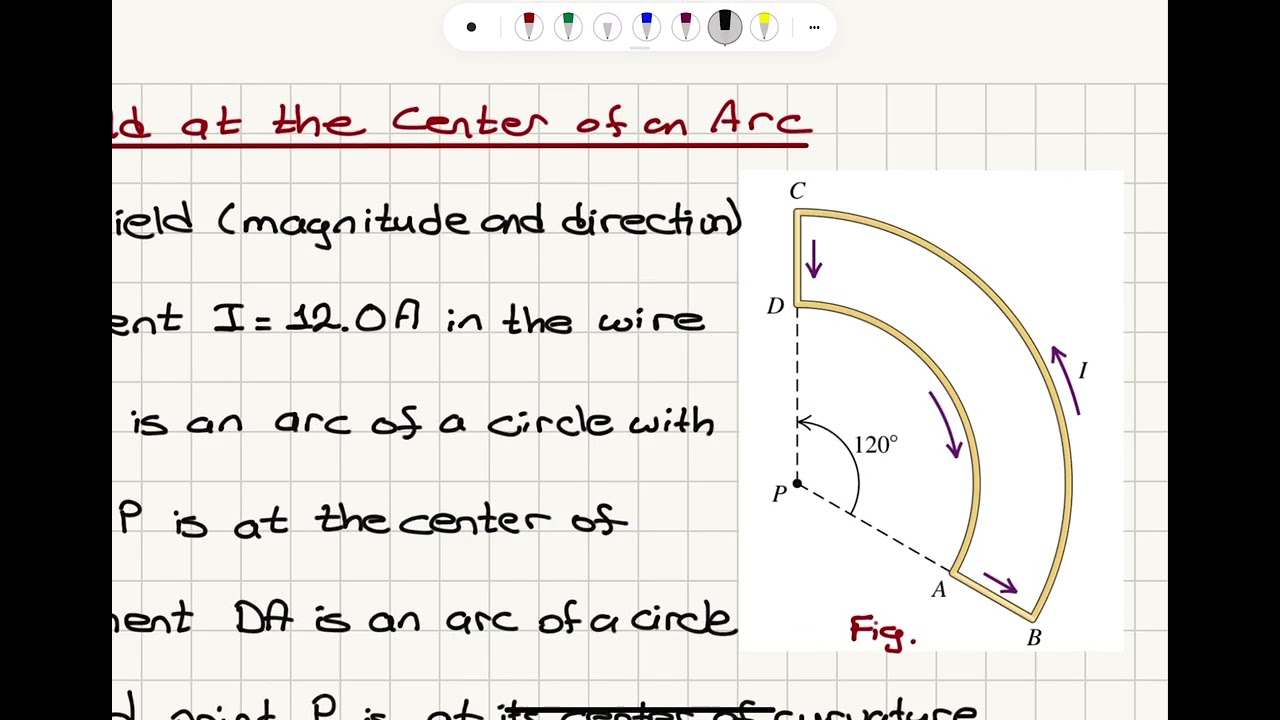 at the Center of an Arc
(magnitude and direction)
I = 12.0A in the wire
is an arc of a circle with
P is at the center of
DA is an arc of a circle
point P is at its center of curvature
C
D
I
120°
P
A
B
Fig.